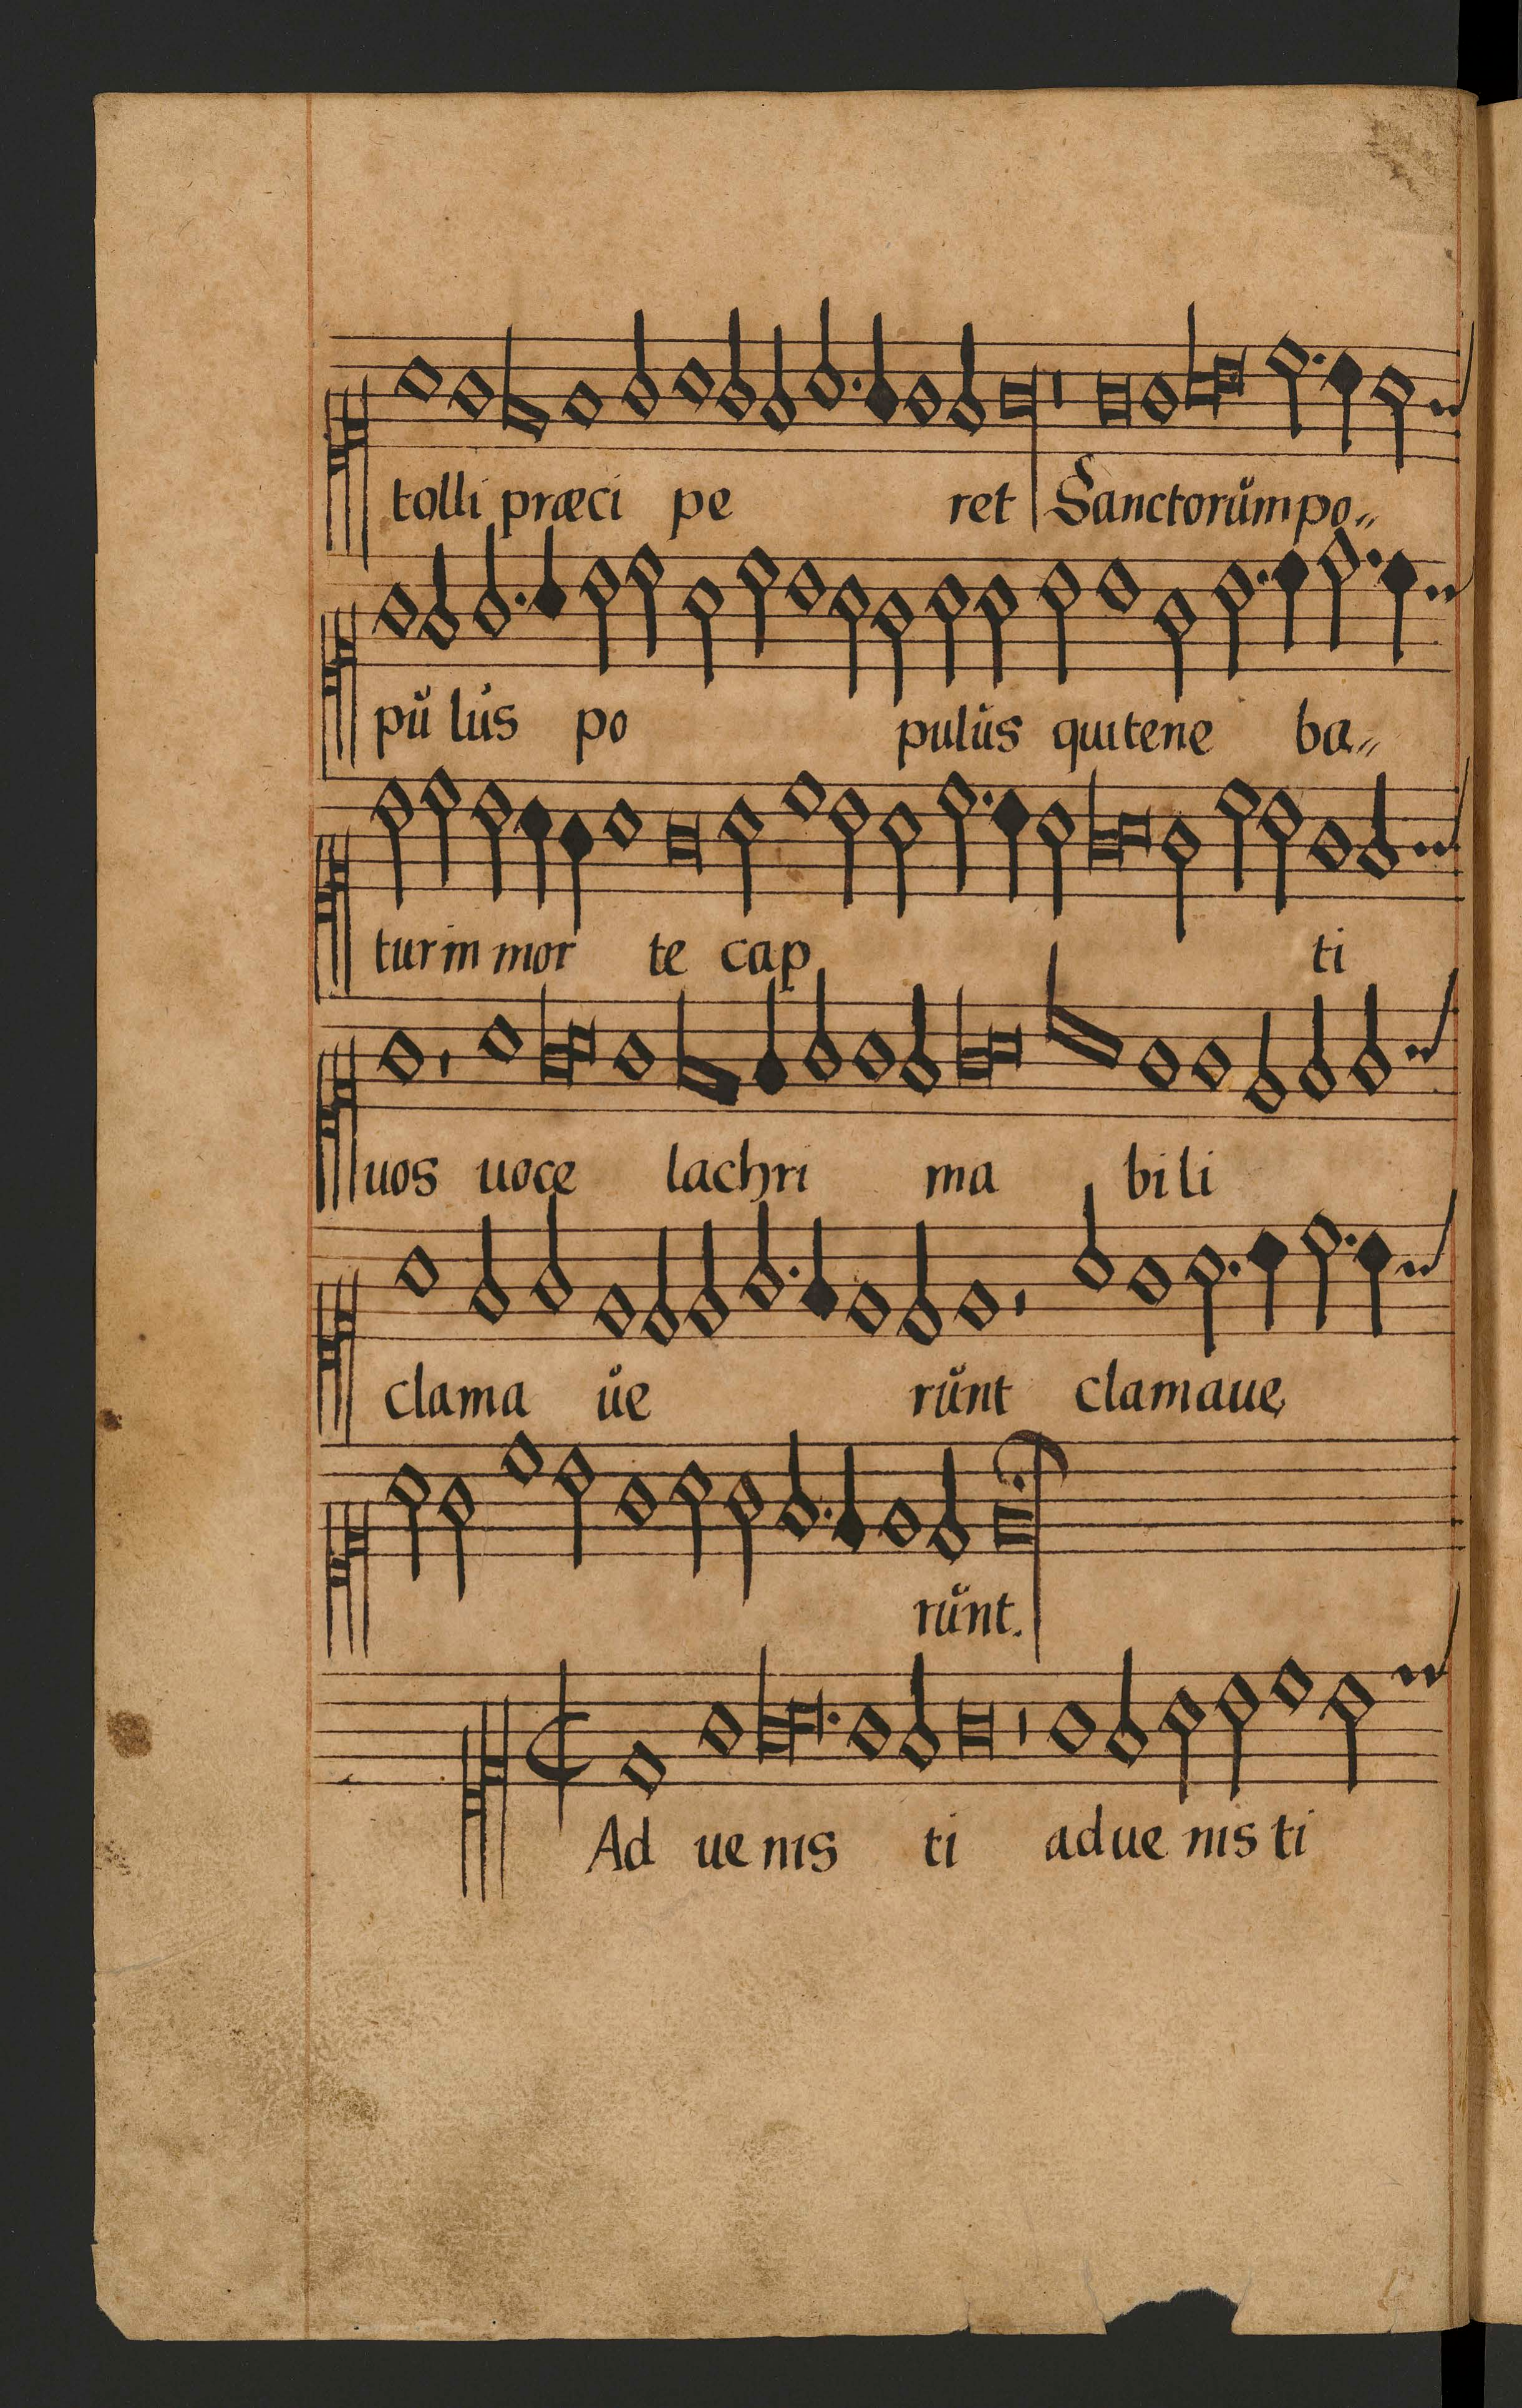 tolli præci pe ret Sanctorŭm po„
pŭ lŭs po pulŭs qui tene ba„
tur in mor te cap ti
uos uoce lachri ma bi li
clama ŭe rŭnt clamaue
rŭnt.
Ad ue nis ti adue nis ti